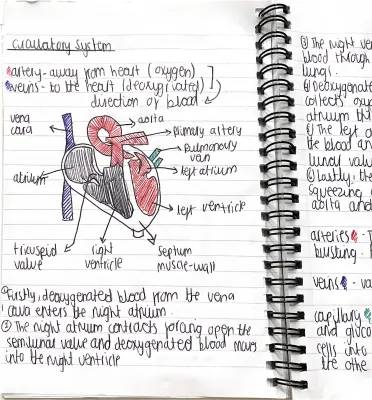 circulatory system
artery - away from heart (oxygen)
veins - to the heart (deoxyginated)
direction of blood
vena
cava
aolta
plimaly altery
pulmonaly
vein
left atlium
atlium
left ventlicle
tlicuspid
valve
light
ventlicle
septum
muscle-wall
① Filstly, deoxygenated blood flom the vena
cava enters the light atlium.
② The light atlium contlacts folcing open the
semilunal valve and deoxygenated blood moves
into the light ventlicle
③ The light ve
blood thlough
lungs.
④ Deoxygenate
collects oxy
atlium th
⑤ The left a
the blood an
lunal valv
⑥ Lastly, the
squeezing
aolta and
alteries - T
busting.
veins - va
capillaly
and gluco
cells into
the othe